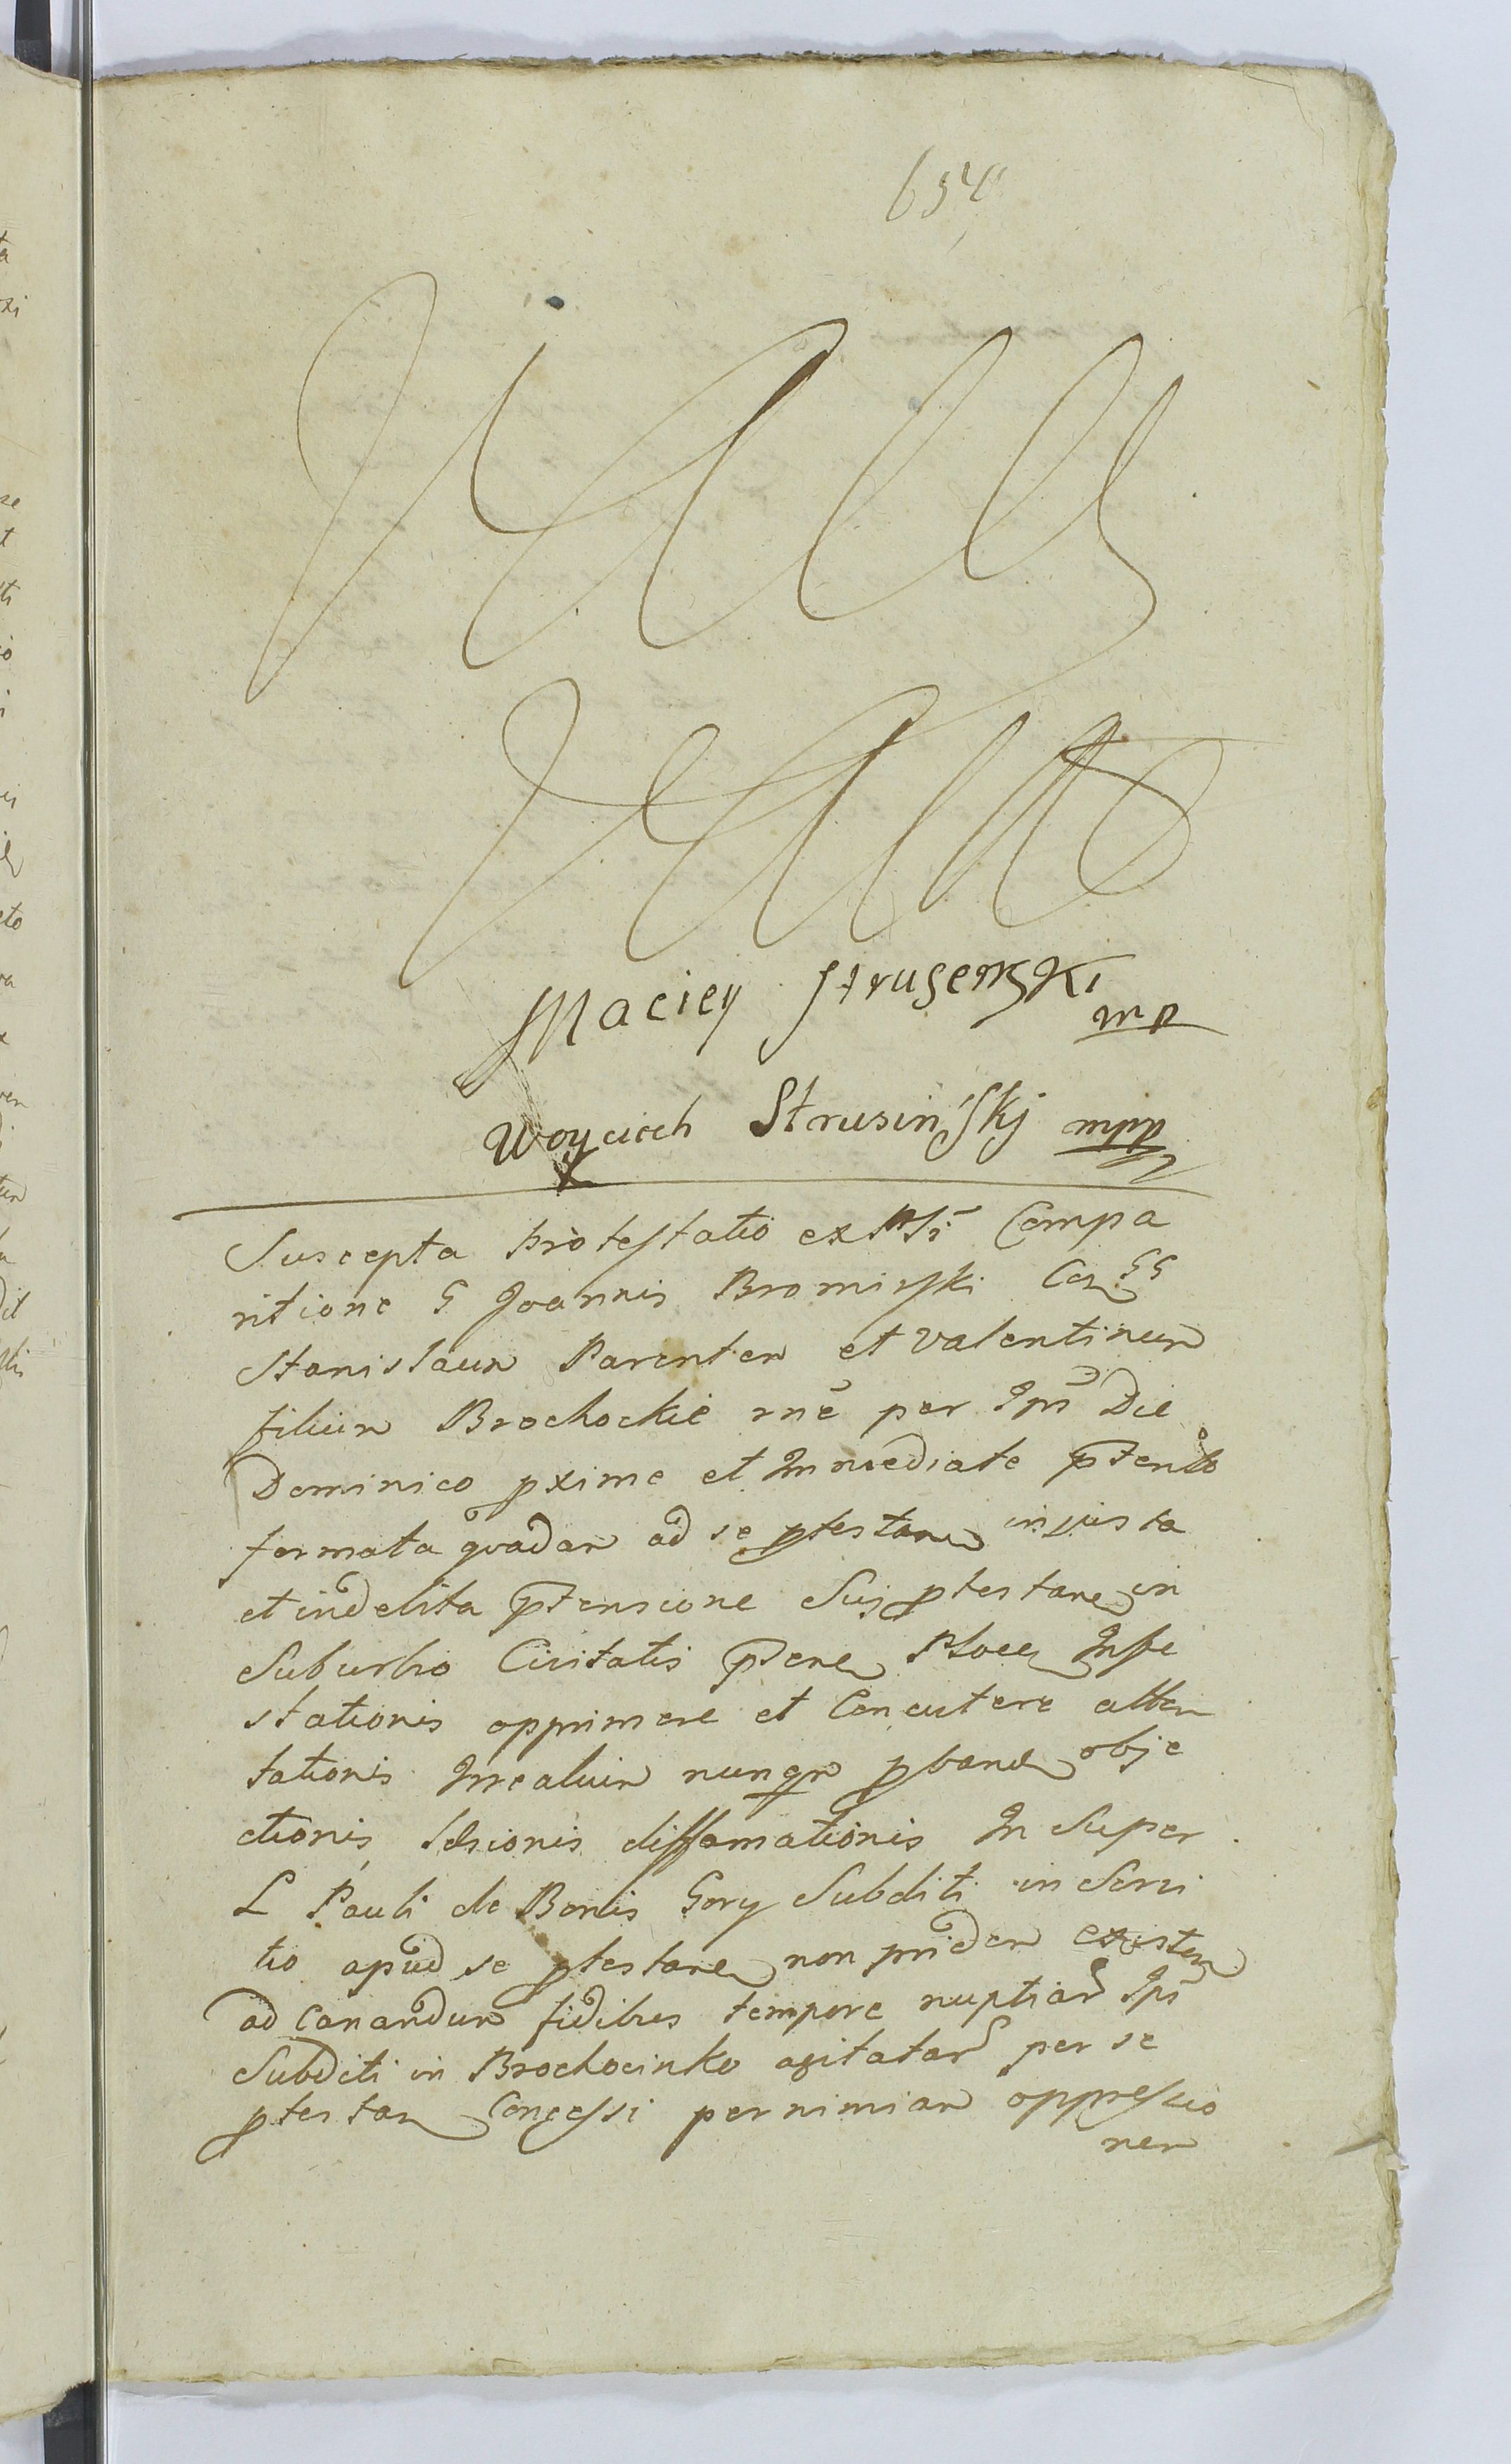 654
Maciey Strusenski
mp
Woyciech Strusinskj mpp
Suscepta protestatio ex Psi Compa
ritione G Joannis Bromirski Con GG
Stanislaum Parentem et Valentinum
filium Brochockie rne per Ipm Die
Dominico pxime et Immediate ptento
formata quadam ad se ptestane injusta
et indebita ptensione Sui ptestane in
Suburbio Civitatis ptene Plocen Infe
stationis opprimere et Concutere atten
tationis Irrealium nunqm pband obje
ctionis lesionis diffamationis In Super
L Pauli de Bonis Gory Subditi in Servi
tio apud se ptestane non pridem existen
ad Canandum fidibus tempore nuptiar Ipi
Subditi in Brochocinko agitatar per se
ptestan Concessi per nimiam oppressio
nem